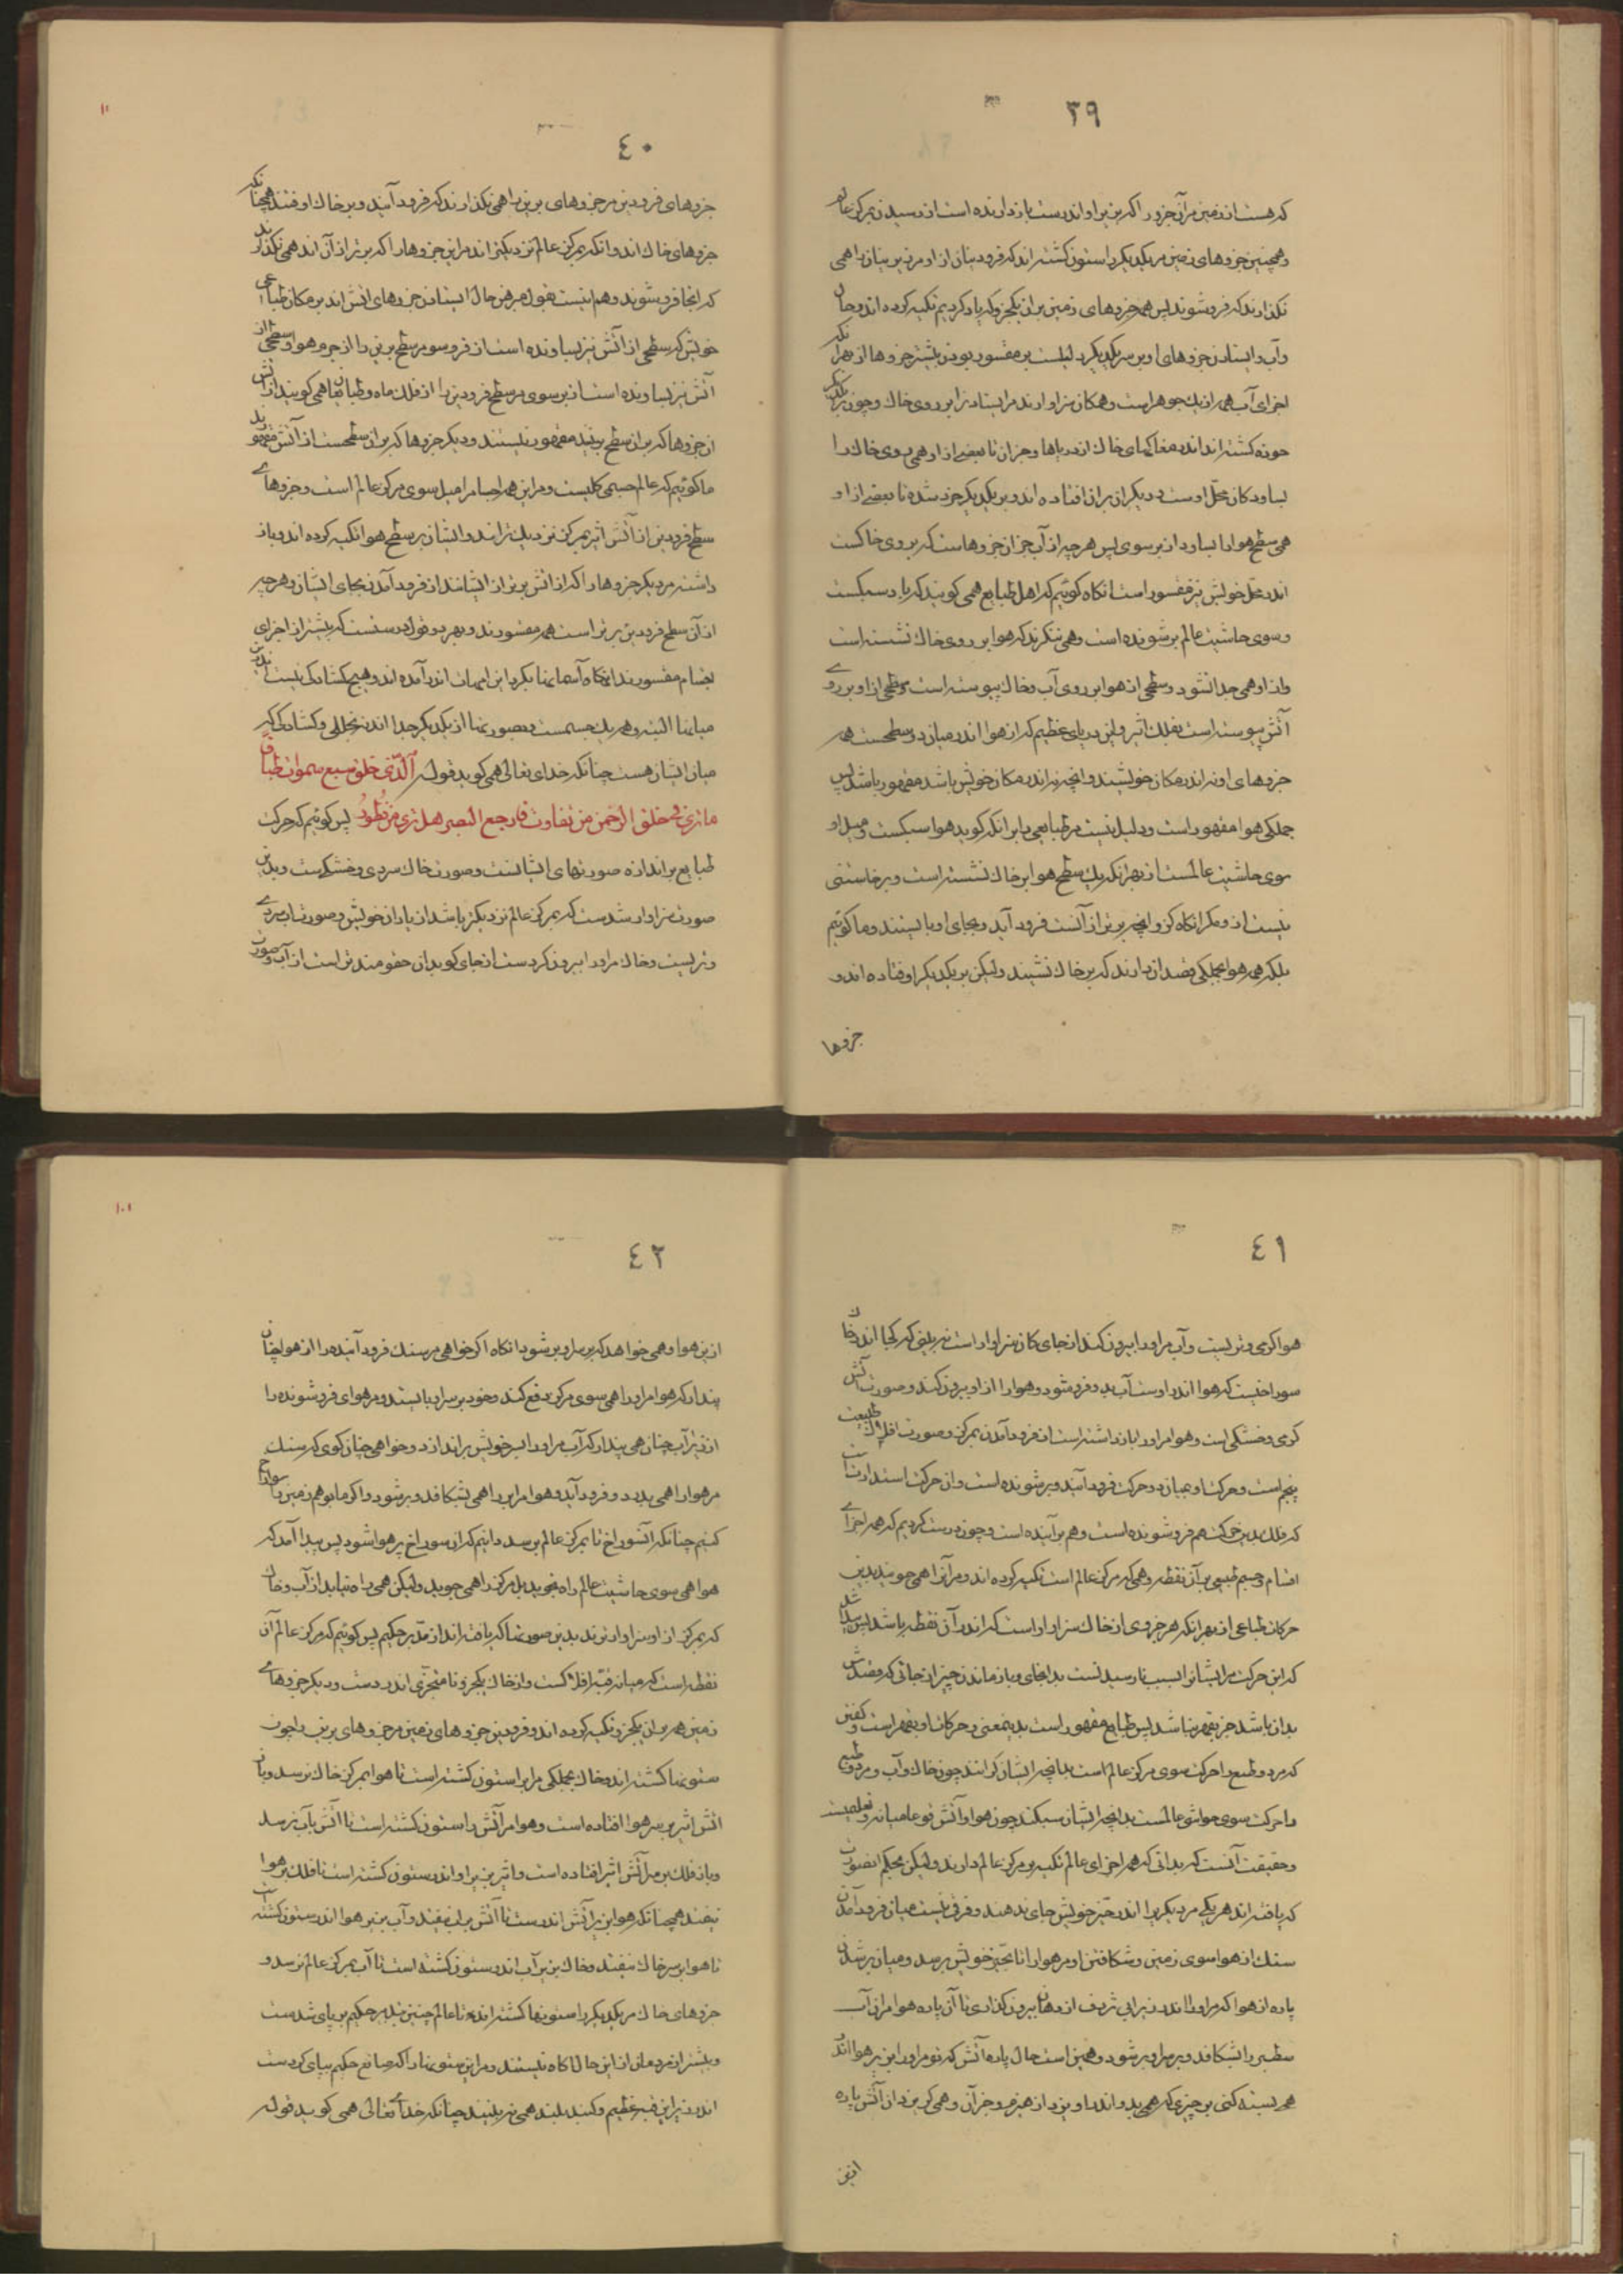 ٣٩
که هست از زمین مر آن جزو را که زیر او اندر است باز دارنده است از رسیدن بمرکز عالم
و همچنین جزوهای زمین مر یکدیگر را ستون گشته‌اند که فرودینان از او مر زبرینان را همی
نگذارند که فرو شوند پس همه جزوهای زمین بر آن یکجزو که یاد کردیم تکیه کرده اند و خاک
و آب و ایستادن جزوهای او بر سر یکدیگر دلیلست بر مقسور بودن بیشتر جزوها از بهر آنکه
اجزای آب همه از یک جوهر است و همگان سزاوارند مر ایستادن را بر روی خاک و چون بر یکدیگر
حوزه گشته اند اندر مغاکهای خاک از دریاها و جز آن تا بعضی از او همی روی خاک را
بساود کان محل اوست و دیگران بر آن افتاده اند و بر یکدیگر خزد شده تا بعضی از او
همی سطح هوا را بساود از بر سوی پس هر چه از آب جز آن جزوهاست که بر روی خاکست
اندر محل خویش نیز مقسور است آنگاه گوئیم که اهل طبایع همی گویند که باد سبکست
و سوی حاشیت عالم بر شونده است و همی ننگرند که هوا بر روی خاک نشسته است
و از او همی جدا نشود و سطحی از هوا بر روی آب و خاک پیوسته است و سطحی از او بر روی
آتش پیوسته است بفلک اثیر و این دریای عظیم که از هوا اندر میان دو سطحست همه
جزوهای او نه اندر مکان خویشند و آنچه نه اندر مکان خویش باشد مقهور باشد پس
جملگی هوا مقهور است و دلیل نیست مر طبایعی را بر آنکه گوید هوا سبکست و میل او
سوی حاشیت عالمست از بهر آنکه یک سطح هوا بر خاک نشسته است و برخاستنی
نیست از و مگر آنگاه کز و آنچه برتر از آنست فرود آید و بجای او بایستند و ما گوئیم
بلکه همه هوا بجملگی قصد آن دارند که بر خاک نشینند ولیکن بر یکدیگر اوفتاده اند و
جزوها
٤٠
جزوهای فرودین مر جزوهای برین را همی نگذارند که فرود آیند و بر خاک اوفتند همچنانکه
جزوهای خاک اند و آنکه بمرکز عالم نزدیکتر اند مر این جزوها را که برتر از آن اند همی نگذارند
که آنجا فرو شوند و هم اینست بقول مر هن حال ایستادن جزوهای آتش اندر مکان طباعی
خویش که سطحی از آتش نیز بساونده است از فرو سو مر سطح برین را از جرم هوا و سطحی از
آتش نیز بساونده است از بر سوی مر سطح فرودین را از فلک ماه و طباعیان همی گویند از آتش
آن جزوها که بر آن سطح برینند مقهور نیستند و دیگر جزوها که بر آن سطحست از آتش مقهورند
ما گوئیم که عالم جسمی کلیست و مر این همه اجسام را میل سوی مرکز عالم است و جزوهای
سطح فرودین از آتش اثیر بمرکز نزدیک تر اند و ایشان بر سطح هوا تکیه کرده اند و باز
داشته مر دیگر جزوها را که از آتش برتر از ایشانند از فرود آمدن بجای ایشان و هر چه
از آن سطح فرودین برتر است همه مقسورند و بهر دو قول درستست که بیشتر از اجزای
اجسام مقسورند آنگاه آسمانها بگرد این امهات اندر آمده اند و هیچ گشادگی نیست
میانها البته و هر یک جسمست و بصورتها از یکدیگر جدا اند نه بخللی و گشادگی که
میان ایشان هست چنانکه خدای تعالی همی گوید قوله الَّذی خلق سبع سموات طباقا
ما تری فی خلق الرحمن من تفاوت فارجع البصر هل تری من فطور پس گوئیم که حرکت
طبایع بر اندازه صورتهای ایشانست و صورت خاک سردی و خشکیست و بدین
صورت سزاوار شدست که بمرکز عالم نزدیکتر باشد از یاران خویش و صورت آب سردی
و تریست و خاک مر او را بیرون کردست از جای کو بدان حقومندتر است از آب و صورت
٤١
هوا گرمی و تریست و آب مر او را بیرون کند از جای کان سزاوار است نه بینی که هر کجا اندر خاک
سوراخیست که هوا اندر اوست آب بدو فرو شود و هوا را از او بیرون کند و صورت آتش
گرمی و خشکی است و هوا مر او را باز داشته است از فرود آمدن بمرکز و صورت افلاک طبیعت
پنجم است و حرکت او میان دو حرکت فرود آینده و بر شونده است و آن حرکت استدارتست
که فلک بدین حرکت هم فرو شونده است و هم بر آینده است و چون درست کردیم که همه اجزای
اقسام جسم طبیعی بر آن نقطه وهمی که مرکز عالم است تکیه کرده اند و مر آنرا همی جویند بدین
حرکات طباعی از بهر آنکه هر جزوی از خاک سزاوار است که اندر آن نقطه باشد پس پیدا شد
که این حرکت مر ایشانرا بسبب نارسیدنست بدانجای و باز ماندن چیز از جائی که قصدش
بدان باشد جز بقهر نباشد پس طبایع مقهور است بدینمعنی و حرکات او بقهر است و گفتن
که مر دو طبع را حرکت سوی مرکز عالم است بدانچه ایشان گرانند چون خاک و آب و مر دو طبع
را حرکت سوی حواشی عالمست بدانچه ایشان سبکند چون هوا و آتش قو عامیانه و تعلیمیست
و حقیقت آنست که بدانی که همه اجزای عالم تکیه بر مرکز عالم دارند ولیکن بحکم آنصورت
که یافته اند هر یکی مر دیگر را اندر حیز خویش جای ندهند و فرقی نیست میان فرود آمدن
سنگ از هوا سوی زمین و شکافتن او مر هوا را تا بحیز خویش برسد و میان بر شدن
پاره از هوا که مر او را اندر زیر آبی ژرف از دهان بیرون گذاری تا آن پاره هوا مر آن آب
سطبر را بشکافد و بر سر او بر شود و همین است حال پاره آتش که تو مر او را بزیر هوا اند
هر بسته کنی بر چیزی که همی بدو اندر او یزد از هیزم و جز آن و همی گریزد از آتش پاره
ازین
٤٢
ازین هوا و همی خواهد که بر سر او بر شود آنگاه اگر خواهی مر سنگ فرود آینده را از هوا چنان
پندار که هوا مر او را همی سوی مرکز دفع کند و خود بر سر او بایستد و مر هوای فرو شونده را
اندر زیر آب چنان همی پندار که آب مر او را بسر خویش بر اندازد و خواهی چنان گوی که سنگ
مر هوا را همی بدرد و فرود آید و هوا مر آب را همی بشکافد و بر شود و اگر ما بوهم زمین را سوراخ
کنیم چنانکه آنسوراخ تا بمرکز عالم برسد دانیم که آن سوراخ پر هوا شود پس پیدا آمد که
هوا همی سوی حاشیت عالم راه نجوید بل مرکز را همی جوید ولیکن همی راه نیابد از آب و خاک
که بمرکز از او سزاوارترند بدین صورتها که یافته اند از مدبر حکیم پس گوئیم که مرکز عالم آن
نقطه است که میانه قبه افلاکست و از خاک یکجزو نامتجزی اندر دست و دیگر جزوهای
زمین همه بر آن یکجزو تکیه کرده اند و فرودین جزوهای زمین مر جزوهای برین را چون
ستونها گشته اند و خاک بجملگی مر آبرا ستون گشته است تا هوا بمرکز خاک نرسد و باز
آتش اثیر بر سر هوا افتاده است و هوا مر آتش را ستون گشته است تا آتش بآب نرسد
و باز فلک بر سر آتش اثیر افتاده است و اثیر بزیر او اندر ستون گشته است تا فلک بر هوا
نیفتد همچنانکه هوا بزیر آتش اندرست تا آتش بر آب نیفتد و آب بزیر هوا اندر ستون گشته است
تا هوا بر سر خاک نیفتد و خاک بزیر آب اندر ستون گشته است تا آب بمرکز عالم نرسد و
جزوهای خاک مر یکدیگر را ستونها گشته اند تا عالم چنین بتدبیر حکیم بر پای شدست
و بیشتر از مردمان ازین حال آگاه نیستند و مر این ستونها را که صانع حکیم بپای کردست
اندر زیر این قبه عظیم و گنبد بلند همی نه بینند چنانکه خدای تعالی همی گوید قوله